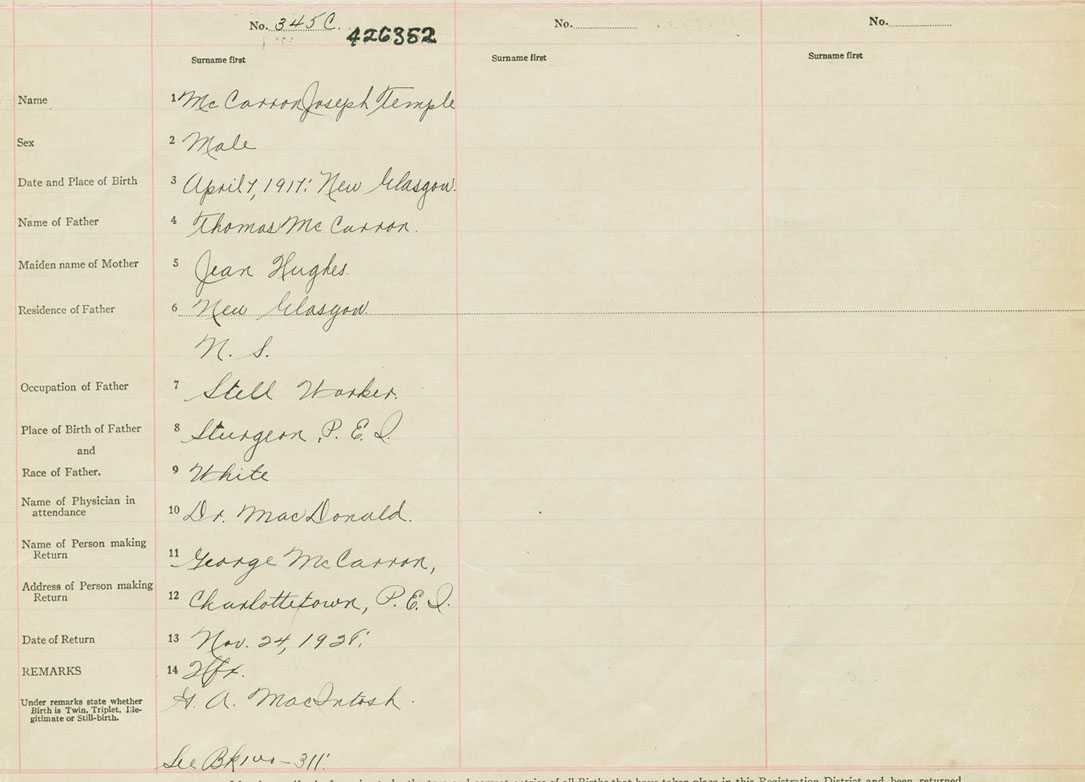 No. 345C. No. No.
426352
Surname first Surname first Surname first
Name 1 McCarron Joseph Temple
Sex 2 Male
Date and Place of Birth 3 April 7, 1917. New Glasgow.
Name of Father 4 Thomas McCarron.
Maiden name of Mother 5 Jean Hughes.
Residence of Father 6 New Glasgow
N. S.
Occupation of Father 7 Stell Worker.
Place of Birth of Father 8 Sturgeon, P. E. I.
and
Race of Father. 9 White
Name of Physician in
attendance 10 Dr. MacDonald.
Name of Person making
Return 11 George McCarron,
Address of Person making
Return 12 Charlottetown, P.E.I.
Date of Return 13 Nov. 24,
REMARKS 14 Hfx.
Under remarks state whether
Birth is Twin, Triplet, Ille-
gitimate or Still-birth.
A. MacIntosh.
See 311
of all Births that have taken place in this Registration District and been returned